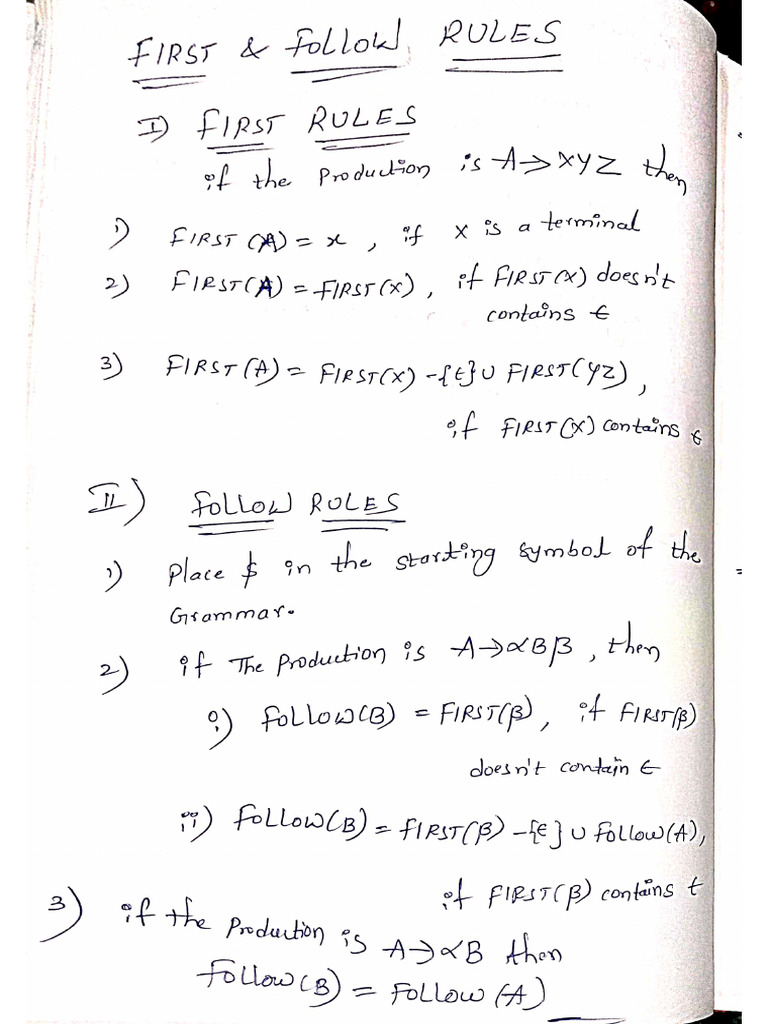 FIRST & FOLLOW RULES
I) FIRST RULES
if the Production is A→XYZ then
1) FIRST(A) = x, if x is a terminal
2) FIRST(A) = FIRST(X), if FIRST(X) doesn't
contains ϵ
3) FIRST(A) = FIRST(X) -{ϵ}∪ FIRST(YZ),
if FIRST(X) contains ϵ
II) FOLLOW RULES
1) Place $ in the starting symbol of the
Grammar.
2) if The Production is A→αBβ, then
i) FOLLOW(B) = FIRST(β), if FIRST(β)
doesn't contain ϵ
ii) FOLLOW(B) = FIRST(β) -{ϵ} ∪ FOLLOW(A),
if FIRST(β) contains ϵ
3) if the Production is A→αB then
FOLLOW(B) = FOLLOW(A)